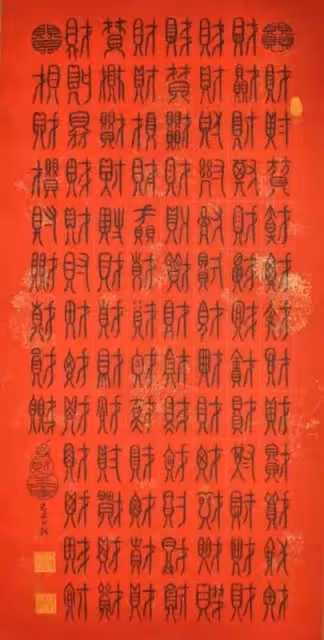 財財財財財財財財財財財財
財財財財財財財財財財財財財
財財財財財財財財財財財財財
財財財財財財財財財財財財財
財財財財財財財財財財財財財
財財財財財財財財財財財財財
財財財財財財財財財財財財財
財財財財財財財財